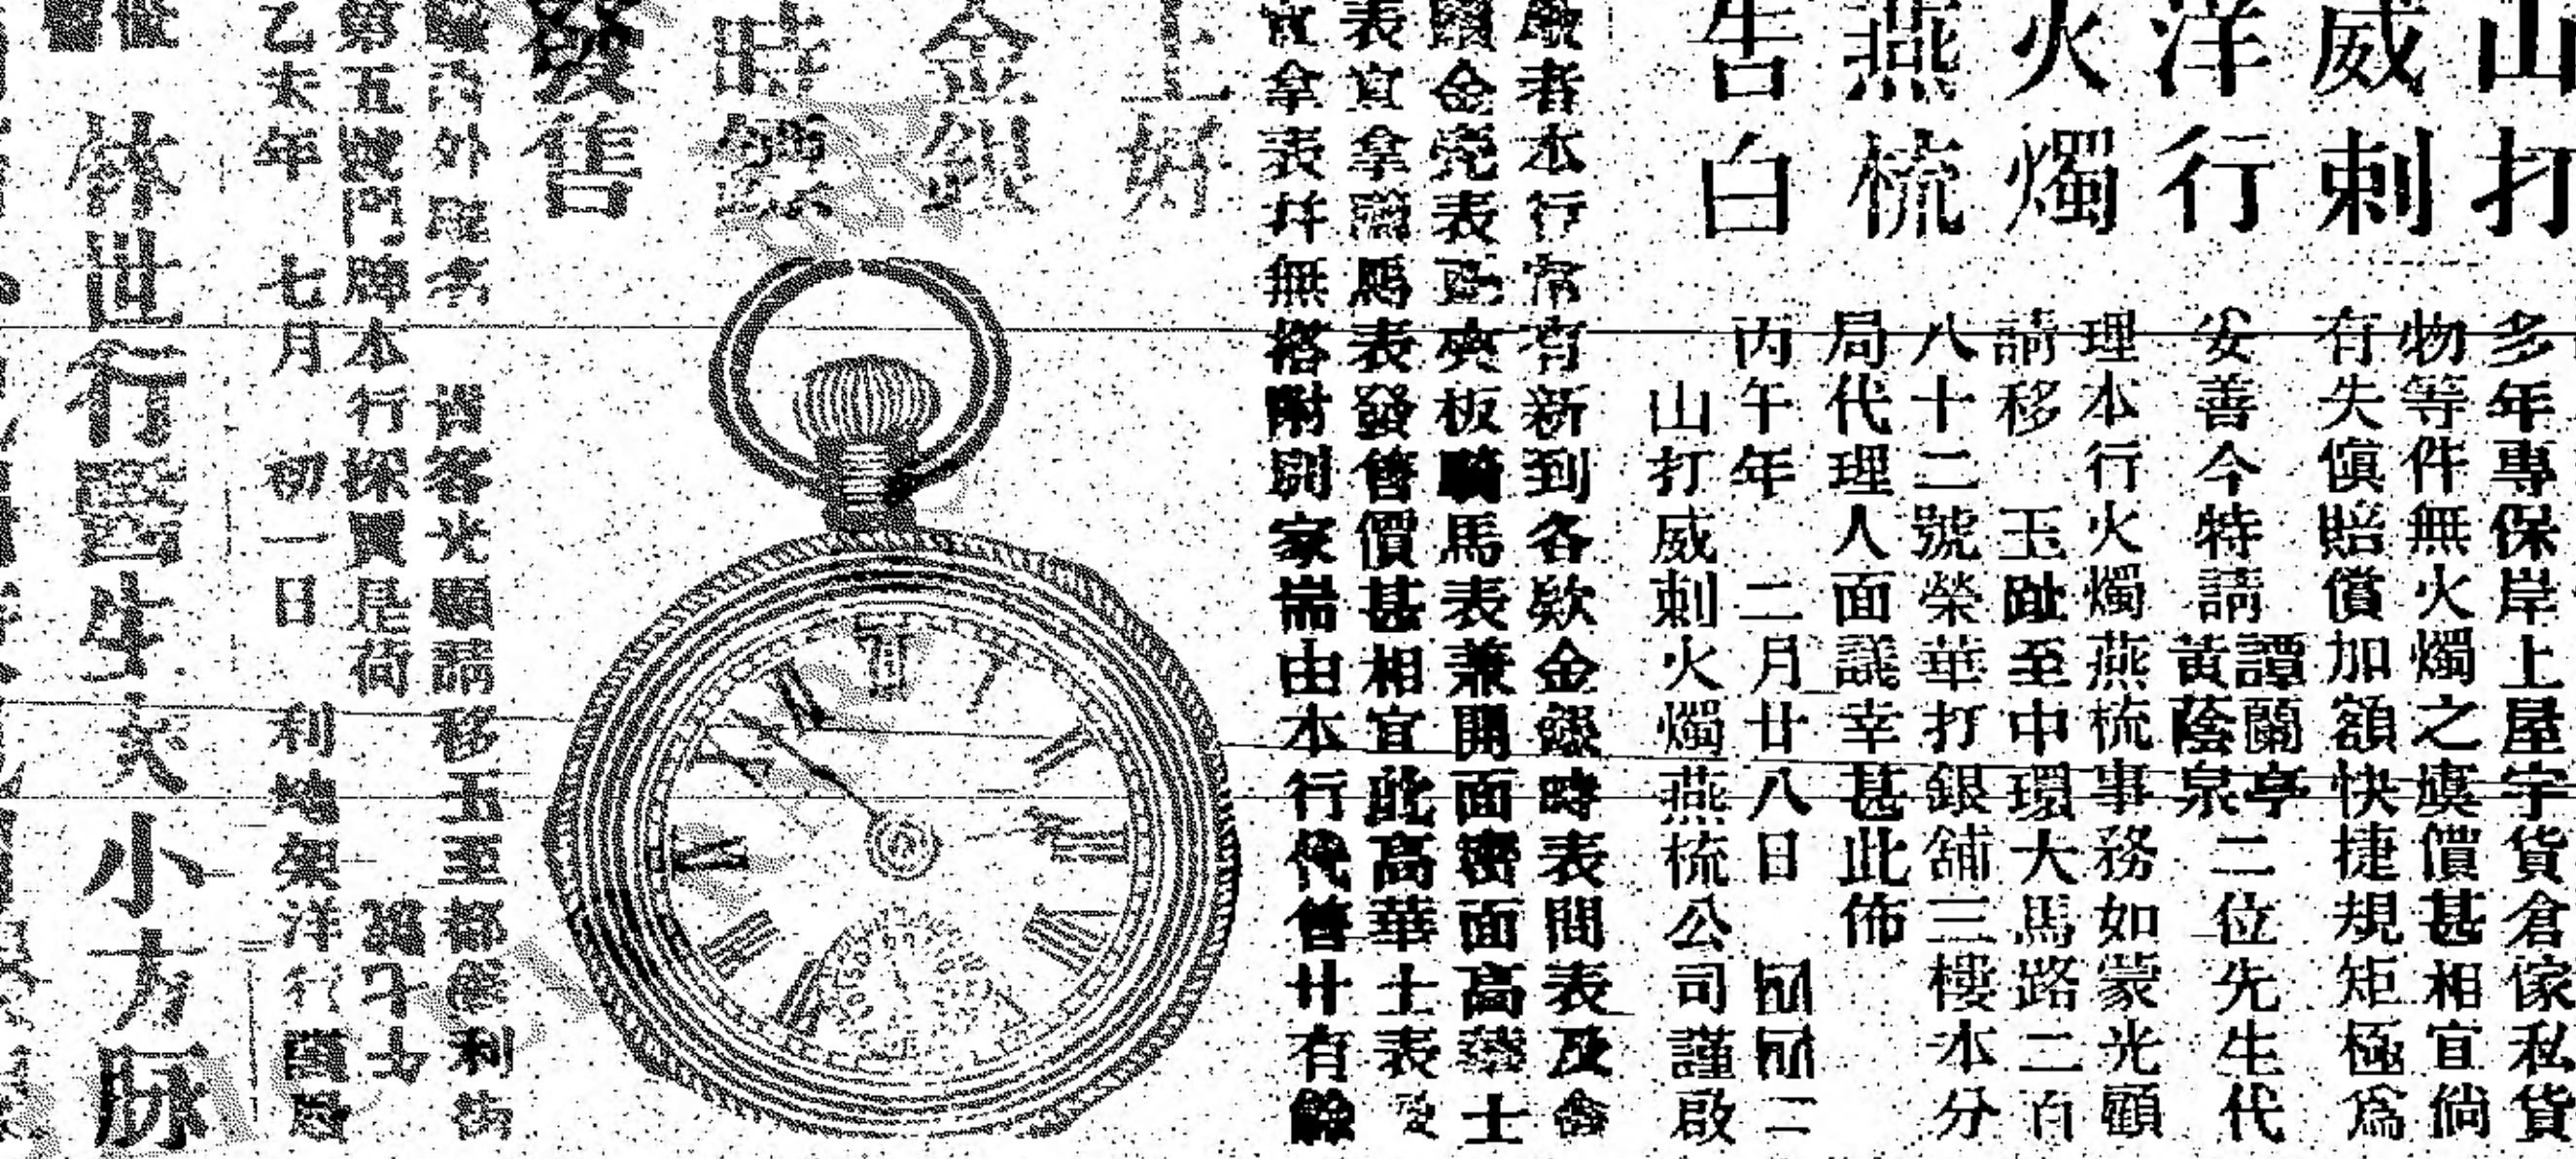 山打
威剌
洋行
火燭
燕梳
告白
多年專保岸上屋宇貨倉傢私貨
物等件無火燭之虞價甚相宜倘
有失慎賠償加額快捷規矩極爲
安善今特請譚蘭亭黃蔭泉二位先生代
理本行火燭燕梳事務如蒙光顧
請移 玉趾至中環大馬路二百
八十二號榮華打銀舖三樓本分
局代理人面議幸甚此佈
丙午年 二月廿八日
山打威剌火燭燕梳公司謹啟
啟者本行常有新到各欵金銀時表間表及
金壳表 夾板 馬表兼開面密面高 士
表宜拿 馬表發售價甚相宜此高華士表
宜拿表幷無搭附別家耑由本行代售廿有餘
上好
金銀
時
發售
外 貴客光顧請移玉至 利街
第五號門牌本行採買是荷
乙未年 七月 初一日 利 洋行謹啟
林世行醫生大小方脉